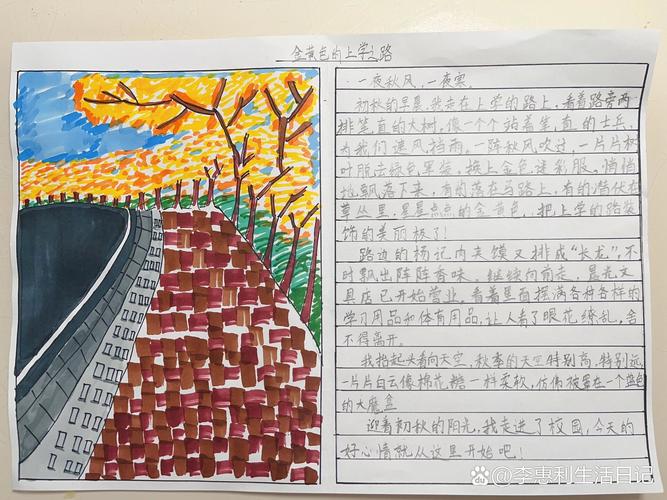 金黄色的上学之路
一夜秋风,一夜寒。
初秋的早晨,我走在上学的路上,看着路旁两
排笔直的大树,像一个个站着笔直的士兵,
为我们遮风挡雨。一阵秋风吹过,一片片树
叶脱去绿色军装,换上金色迷彩服。悄悄
地飘落下来,有的落在马路上,有的潜伏在
草丛里,星星点点的金黄色,把上学的路装
饰的美丽极了!
路边的杨记肉夹馍又排成“长龙”,不
时飘出阵阵香味。继续向前走,晨光文
具店已开始营业,看着里面摆满各种各样的
学习用品和体育用品,让人看了眼花缭乱,舍
不得离开。
我抬起头看向天空,秋季的天空特别高,特别远,
一片片白云像棉花糖一样柔软,仿佛被罩在一个蓝色
的大魔盒
迎着初秋的阳光,我走进了校园,今天的
好心情就从这里开始吧!
李惠利生活日记